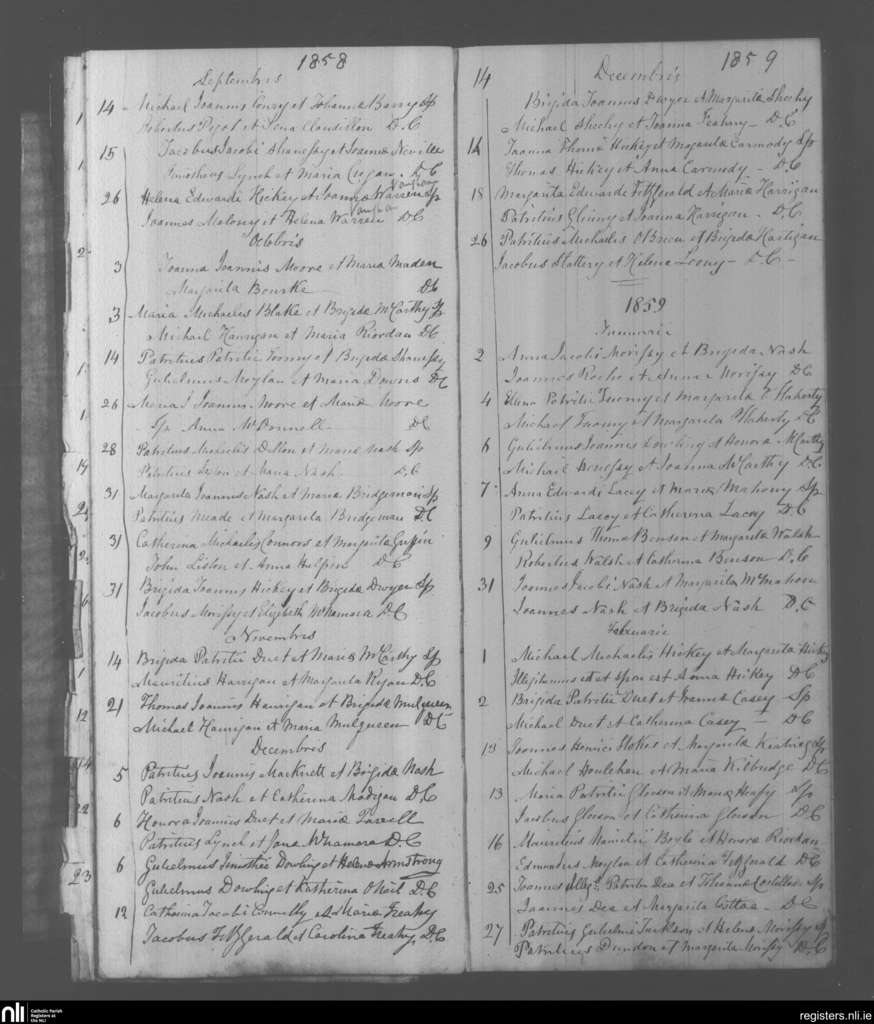 1858
Septembris
14 Michael Joannis Conry et Johanna Barry Sp
Robertus Pigot et Lena D.C
15 Jacobus Jacobi Shanessy et Joanna Neville
Timotheus Lynch et Maria Cregan. D.C
26 Helena Edwardi Hickey et Joanna Warren Sp
Vaughan
Joannes Malony et Helena Warren D.C
Octobris
3 Joanna Joannis Moore et Maria Maden
Margarita Bourke D.C
3 Maria Michaelis Blake et Brigida McCarthy Sp
Michael Hannigan et Maria Riordan D.C
14 Patritius Patritii Toomy et Brigida Shanessy
Gulielmus Moylan et Maria Downs D.C
26 Maria Joannis Moore et Maria Moore
Sp Anna McDonnell D.C
28 Patritius Michaelis Dillon et Maria Nash Sp
Patritius et Maria Nash D.C
31 Margarita Joannis Nash et Maria Bridgeman Sp
Patritius Meade et Margarita Bridgeman D.C
31 Catherina Michaelis Connors et Margarita Griffin
John Liston et Anna Halpin D.C
31 Brigida Joannis Hickey et Brigida Dwyer Sp
Jacobus Morissy et Elizabeth McNamara D.C
Novembris
14 Brigida Patritii Duet et Maria McCarthy Sp
Mauritius Harrigan et Margarita Ryan D.C
21 Thomas Joannis Hannigan et Brigida Mulqueen
Michael Hannigan et Maria Mulqueen D.C
Decembris
5 Patritius Joannis Macknett et Brigida Nash
Patritius Nash et Catherina Madigan D.C
6 Honora Joannis Duet et Maria Farrell
Patritius Lynch et Jana McNamara D.C
6 Gulielmus Timothei Dowling et Helena Armstrong
Gulielmus Dowling et Katherina O'Neil D.C
12 Catharina Jacobi Connelly et Maria Feahey
Jacobus FitzGerald et Carolina Feahy. D.C
14 Decembris 1859
Brigida Joannis Dwyer et Margarita Sheehy
Michael Sheehy et Joanna Feahany D.C
14 Joanna Thomæ Hickey et Margarita Carmody Sp
Thomas Hickey et Anna Carmody D.C
18 Margarita Edwardi FitzGerald et Maria Harrigan
Patritius Gliny et Joanna Harrigan. D.C
26 Patritius Michaelis O'Brien et Brigida Hartigan
Jacobus Slattery et Helena D.C
1859
Januarii
2 Anna Jacobi Morissy et Brigida Nash
Joannes Roche et Anna Morissy D.C
4 Elena Patritii Toomy et Margarita O'Flaherty
Michael Toomy et Margarita O'Flaherty D.C
6 Gulielmus Joannes Dowling et Honora McCarthy
Michael et Joanna McCarthy D.C
7 Anna Edwardi Lacey et Maria Mahony Sp
Patritius Lacey et Catherina Lacey D.C
9 Gulielmus Thomæ Benson et Margarita Walsh
Robertus Walsh et Catherina Benson D.C
31 Joannes Jacobi Nash et Margarita McMahon
Joannes Nash et Brigida Nash D.C
Februarii
1 Michael Michaelis Hickey et Margarita Hickey
Illegitimus est et spon est Anna Hickey D.C
2 Brigida Patritii Duet et Joanna Casey Sp
Michael Duet et Catherina Casey D.C
13 Joannes Henrici Stokes et Margarita Keating Sp
Michael Houlehan et Maria Kilbridge D.C
13 Maria Patritii Gleeson et Maria Heafy Sp
Jacobus Gleeson et Catherina Gleeson D.C
16 Mauritius Mauritii Boyle et Honora Riordan
Edmundus Moylan et Catherina FitzGerald D.C
25 Joannes illegt. Patritii Dea et Johanna Costelloe Sp
Joannes Dea et Margarita D.C
27 Patritius Gulielmi Jackson et Helena Morissy Sp
Patritius Dundon et Margarita Morissy D.C
nli
Catholic Parish
Registers at
the NLI
registers.nli.ie